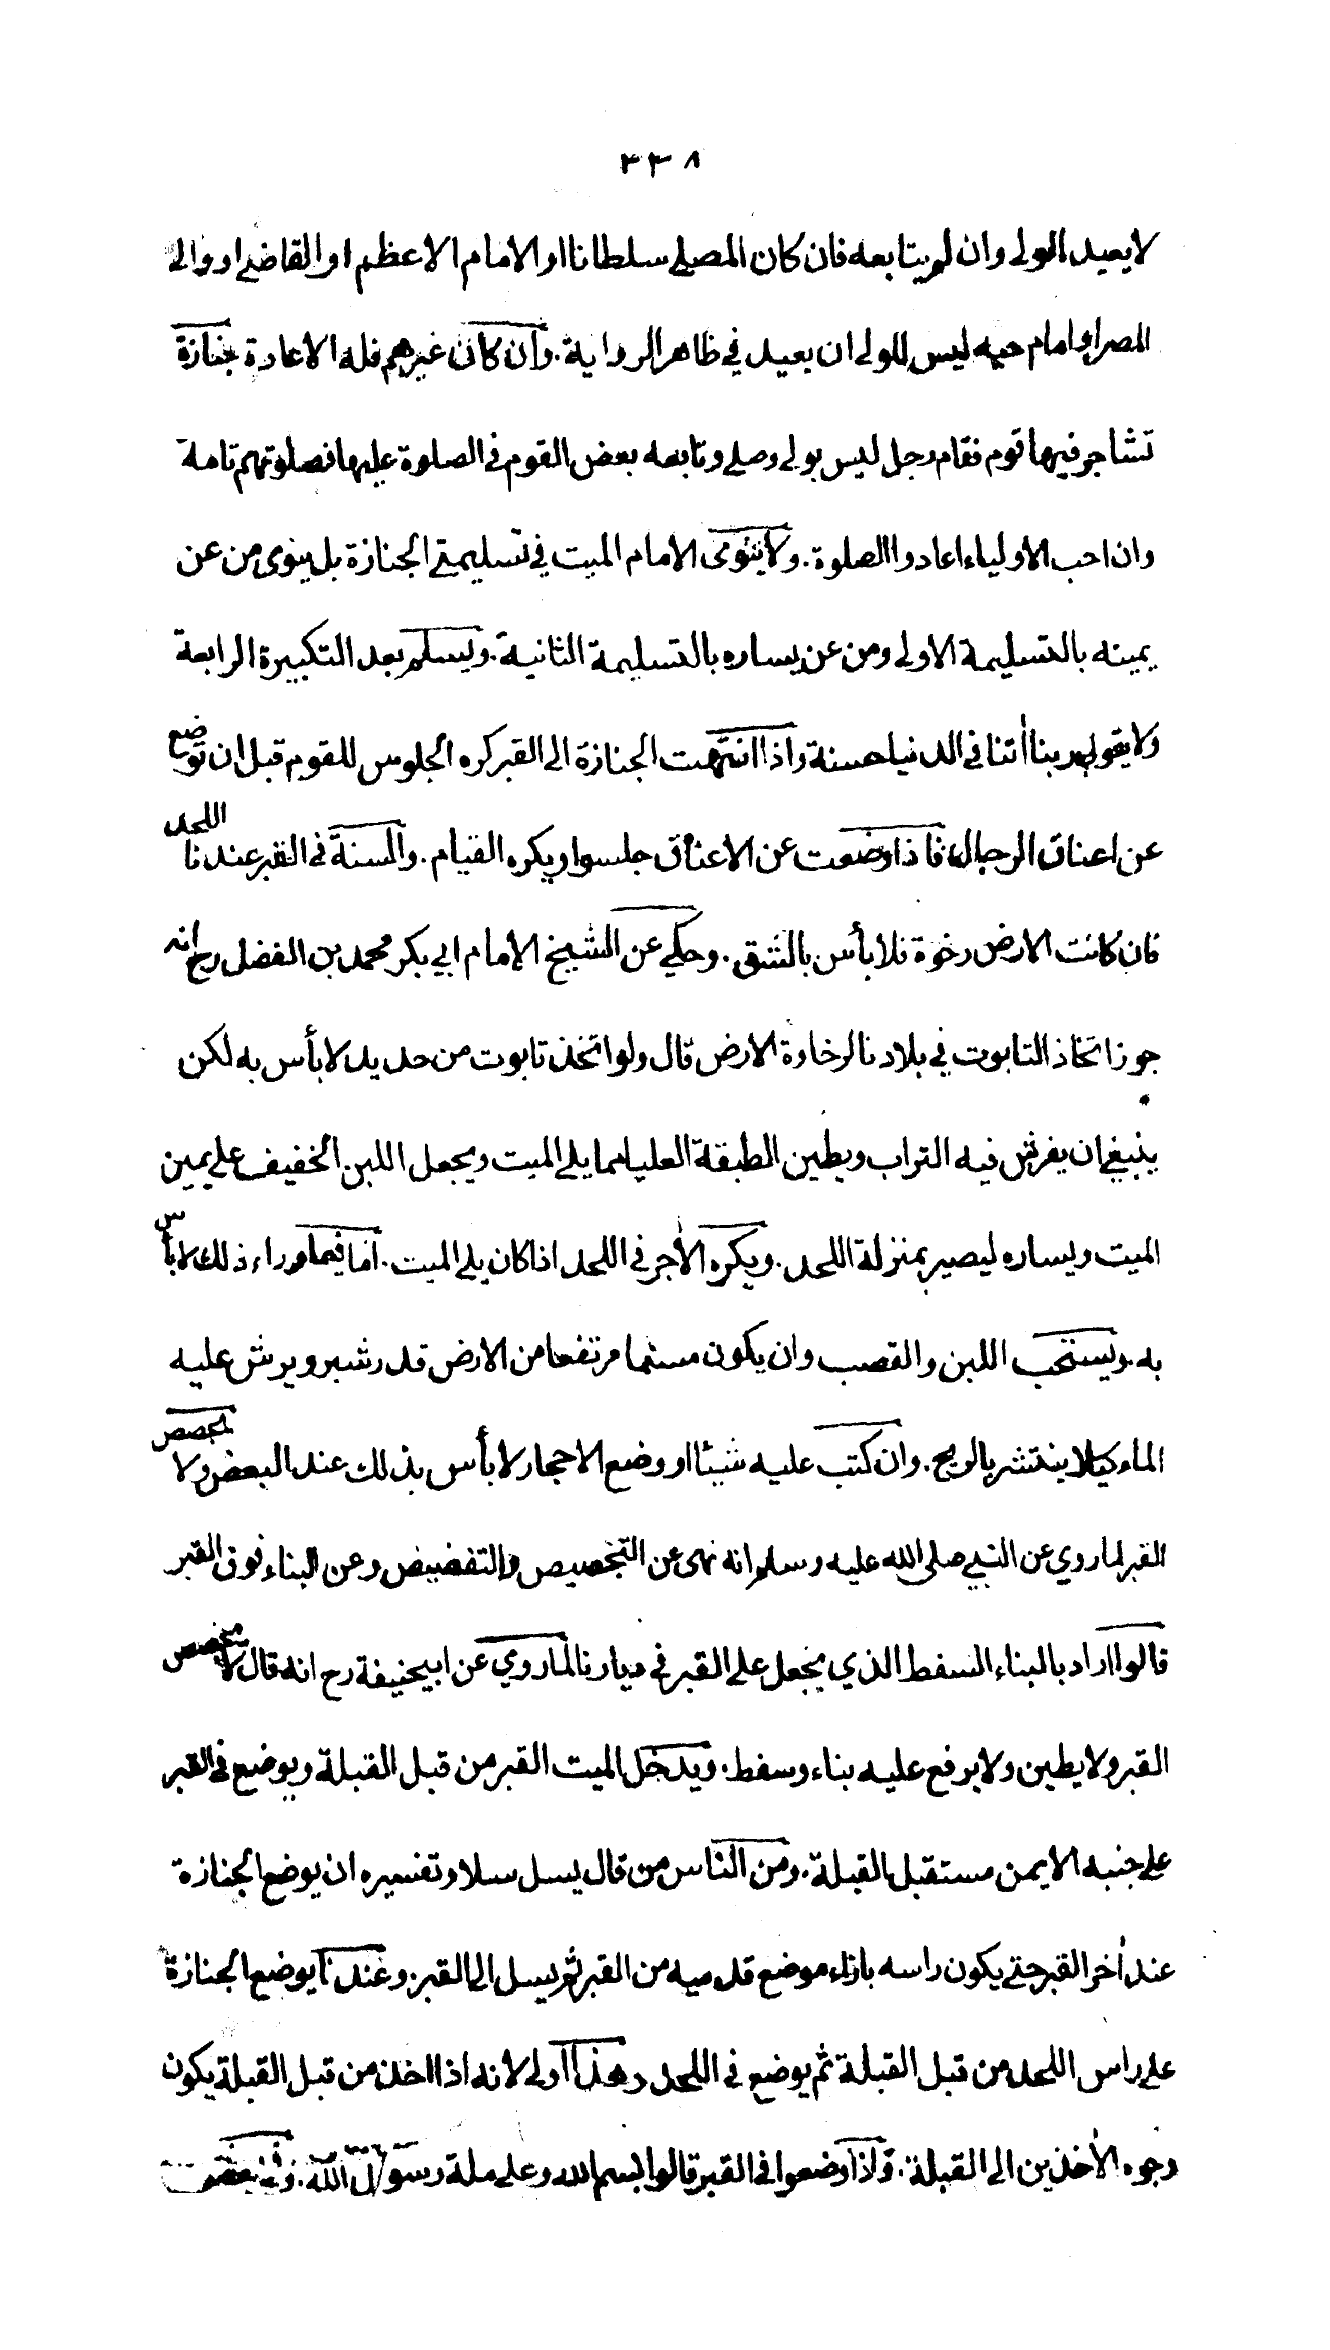 ٣٣٨
لا يعيد الولي وان لم يتابعه فان كان المصلي سلطانا او الامام الاعظم او القاضي او والي
المصر او امام حيه ليس للولي ان يعيد في ظاهر الرواية. وان كان غيرهم فله الاعادة جنازة
تشاجر فيها قوم فقام رجل ليس بولي وصلى وتابعه بعض القوم في الصلوة عليها فصلوتهم تامة
وان احب الاولياء اعادوا الصلوة. ولا ينوى الامام الميت في تسليمتي الجنازة بل ينوى من عن
يمينه بالتسليمة الاولى ومن عن يساره بالتسليمة الثانية. ويسلم بعد التكبيرة الرابعة
ولا يقول ربنا أتنا في الدنيا حسنة واذا انتهت الجنازة الى القبر كره الجلوس للقوم قبل ان توضع
عن اعناق الرجال فاذا وضعت عن الاعناق جلسوا ويكره القيام. والسنة في القبر عندنا اللحد
فان كانت الارض رخوة فلا بأس بالشق. وحكي عن الشيخ الإمام ابي بكر محمد بن الفضل رح انه
جوز اتخاذ التابوت في بلادنا لرخاوة الارض قال ولو اتخذ تابوت من حديد لا بأس به لكن
ينبغي ان يفرش فيه التراب ويطين الطبقة العليا مما يلي الميت ويجعل اللبن الخفيف على يمين
الميت ويساره ليصير بمنزلة اللحد. ويكره الأجر في اللحد اذا كان يلي الميت. اما فيما وراء ذلك لا بأس
به. ويستحب اللبن والقصب وان يكون مسنما مرتفعا من الارض قدر شبر ويرش عليه
الماء كيلا ينتشر بالريح. وان كتب عليه شيئا او وضع الاحجار لا بأس بذلك عند البعض ولا يجصص
القبر لما روي عن النبي صلى الله عليه وسلم انه نهى عن التجصيص والتفضيض وعن البناء فوق القبر
قالوا اراد بالبناء السفط الذي يجعل على القبر في ديارنا لما روي عن ابيحنيفة رح انه قال لا يجصص
القبر ولا يطين ولا يرفع عليه بناء وسفط. ويدخل الميت القبر من قبل القبلة ويوضع في القبر
على جنبه الايمن مستقبل القبلة. ومن الناس من قال يسل سلا وتفسيره ان يوضع الجنازة
عند أخر القبر حتى يكون راسه بازاء موضع قدميه من القبر ثم يسل الى القبر. وعندنا يوضع الجنازة
على راس اللحد من قبل القبلة ثم يوضع في اللحد وهذا اولى لانه اذا اخذ من قبل القبلة يكون
وجوه الأخذين الى القبلة. واذا وضعوا في القبر قالوا بسم الله وعلى ملة رسول الله.